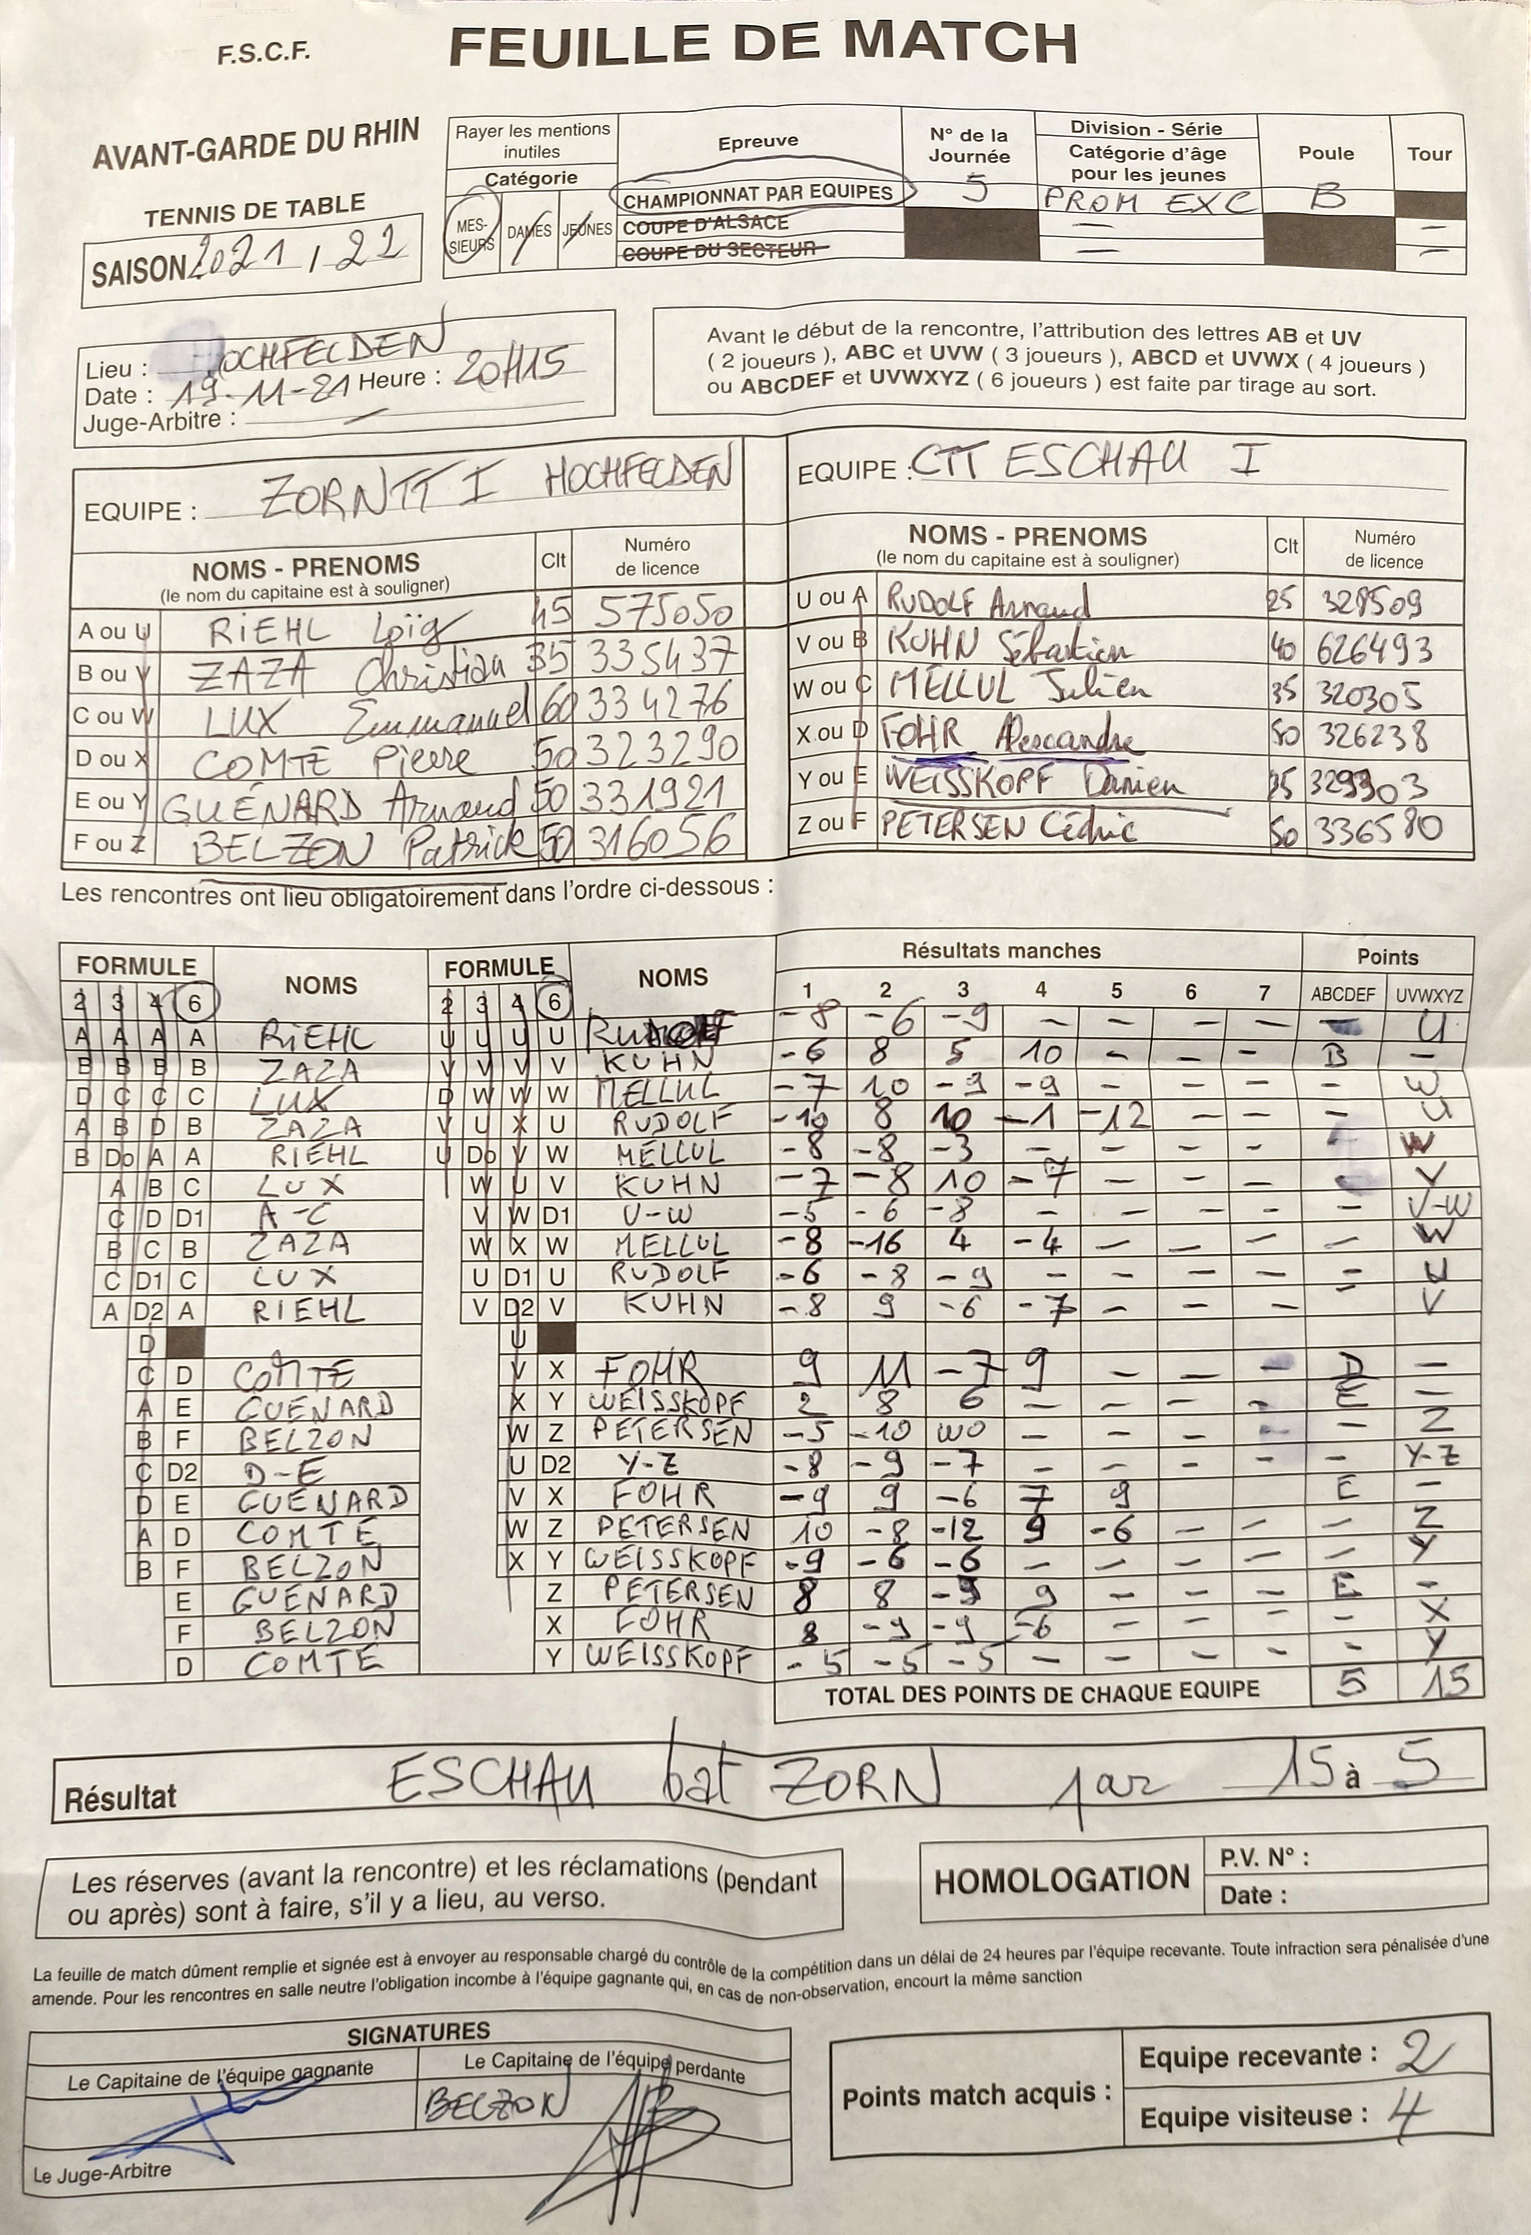 F.S.C.F. FEUILLE DE MATCH
AVANT-GARDE DU RHIN
TENNIS DE TABLE
SAISON 2021 / 22
Rayer les mentions inutiles
Catégorie
MES-SIEURS DAMES JEUNES
Epreuve
CHAMPIONNAT PAR EQUIPES
COUPE D'ALSACE
COUPE DU SECTEUR
N° de la Journée
5
Division - Série
Catégorie d'âge pour les jeunes
PROM EXC
—
—
Poule
B
Tour
—
—
Lieu : HOCHFELDEN
Date : 19-11-21 Heure : 20H15
Juge-Arbitre : —
Avant le début de la rencontre, l'attribution des lettres AB et UV
( 2 joueurs ), ABC et UVW ( 3 joueurs ), ABCD et UVWX ( 4 joueurs )
ou ABCDEF et UVWXYZ ( 6 joueurs ) est faite par tirage au sort.
EQUIPE : ZORNTT I HOCHFELDEN
NOMS - PRENOMS
(le nom du capitaine est à souligner)
Clt
Numéro de licence
A ou U RIEHL Loïg 45 575050
B ou V ZAZA Christian 35 335437
C ou W LUX Emmanuel 60 334276
D ou X COMTE Pierre 50 323290
E ou Y GUÉNARD Arnaud 50 331921
F ou Z BELZON Patrick 50 316056
EQUIPE : CTT ESCHAU I
NOMS - PRENOMS
(le nom du capitaine est à souligner)
Clt
Numéro de licence
U ou A RUDOLF Arnaud 25 328509
V ou B KUHN Sébastien 40 626493
W ou C MELLUL Julien 35 320305
X ou D FOHR Alexandre 50 326238
Y ou E WEISSKOPF Damien 35 329903
Z ou F PETERSEN Cédric 50 336580
Les rencontres ont lieu obligatoirement dans l'ordre ci-dessous :
FORMULE NOMS FORMULE NOMS Résultats manches Points
2 3 4 6 2 3 4 6 1 2 3 4 5 6 7 ABCDEF UVWXYZ
A A A A RIEHL U U U U RUDOLF -8 -6 -9 — — — — — U
B B B B ZAZA V V V V KUHN -6 8 5 10 — — — B —
D C C C LUX D W W W MELLUL -7 10 -9 -9 — — — — W
A B D B ZAZA V U X U RUDOLF -10 8 10 -1 -12 — — — U
B Do A A RIEHL U Do V W MELLUL -8 -8 -3 — — — — W
A B C LUX W U V KUHN -7 -8 10 -7 — — — — V
C D D1 A-C V W D1 V-W -5 -6 -8 — — — — — V-W
B C B ZAZA W X W MELLUL -8 -16 4 -4 — — — — W
C D1 C LUX U D1 U RUDOLF -6 -8 -9 — — — — — U
A D2 A RIEHL V D2 V KUHN -8 9 -6 -7 — — — V
D U
C D COMTE V X FOHR 9 11 -7 9 — — — D —
A E GUENARD X Y WEISSKOPF 2 8 6 — — — — E —
B F BELZON W Z PETERSEN -5 -10 WO — — — — — Z
C D2 D-E U D2 Y-Z -8 -9 -7 — — — — — Y-Z
D E GUENARD V X FOHR -9 9 -6 7 9 E —
A D COMTE W Z PETERSEN 10 -8 -12 9 -6 — — — Z
B F BELZON X Y WEISSKOPF -9 -6 -6 — — — — — Y
E GUENARD Z PETERSEN 8 8 -9 9 — — — E —
F BELZON X FOHR 8 -9 -9 -6 — — — — X
D COMTE Y WEISSKOPF -5 -5 -5 — — — — — Y
TOTAL DES POINTS DE CHAQUE EQUIPE 5 15
Résultat ESCHAU bat ZORN par 15 à 5
Les réserves (avant la rencontre) et les réclamations (pendant
ou après) sont à faire, s'il y a lieu, au verso.
HOMOLOGATION
P.V. N° :
Date :
La feuille de match dûment remplie et signée est à envoyer au responsable chargé du contrôle de la compétition dans un délai de 24 heures par l'équipe recevante. Toute infraction sera pénalisée d'une
amende. Pour les rencontres en salle neutre l'obligation incombe à l'équipe gagnante qui, en cas de non-observation, encourt la même sanction
SIGNATURES
Le Capitaine de l'équipe gagnante
Le Capitaine de l'équipe perdante
BELZON
Le Juge-Arbitre
Points match acquis :
Equipe recevante : 2
Equipe visiteuse : 4